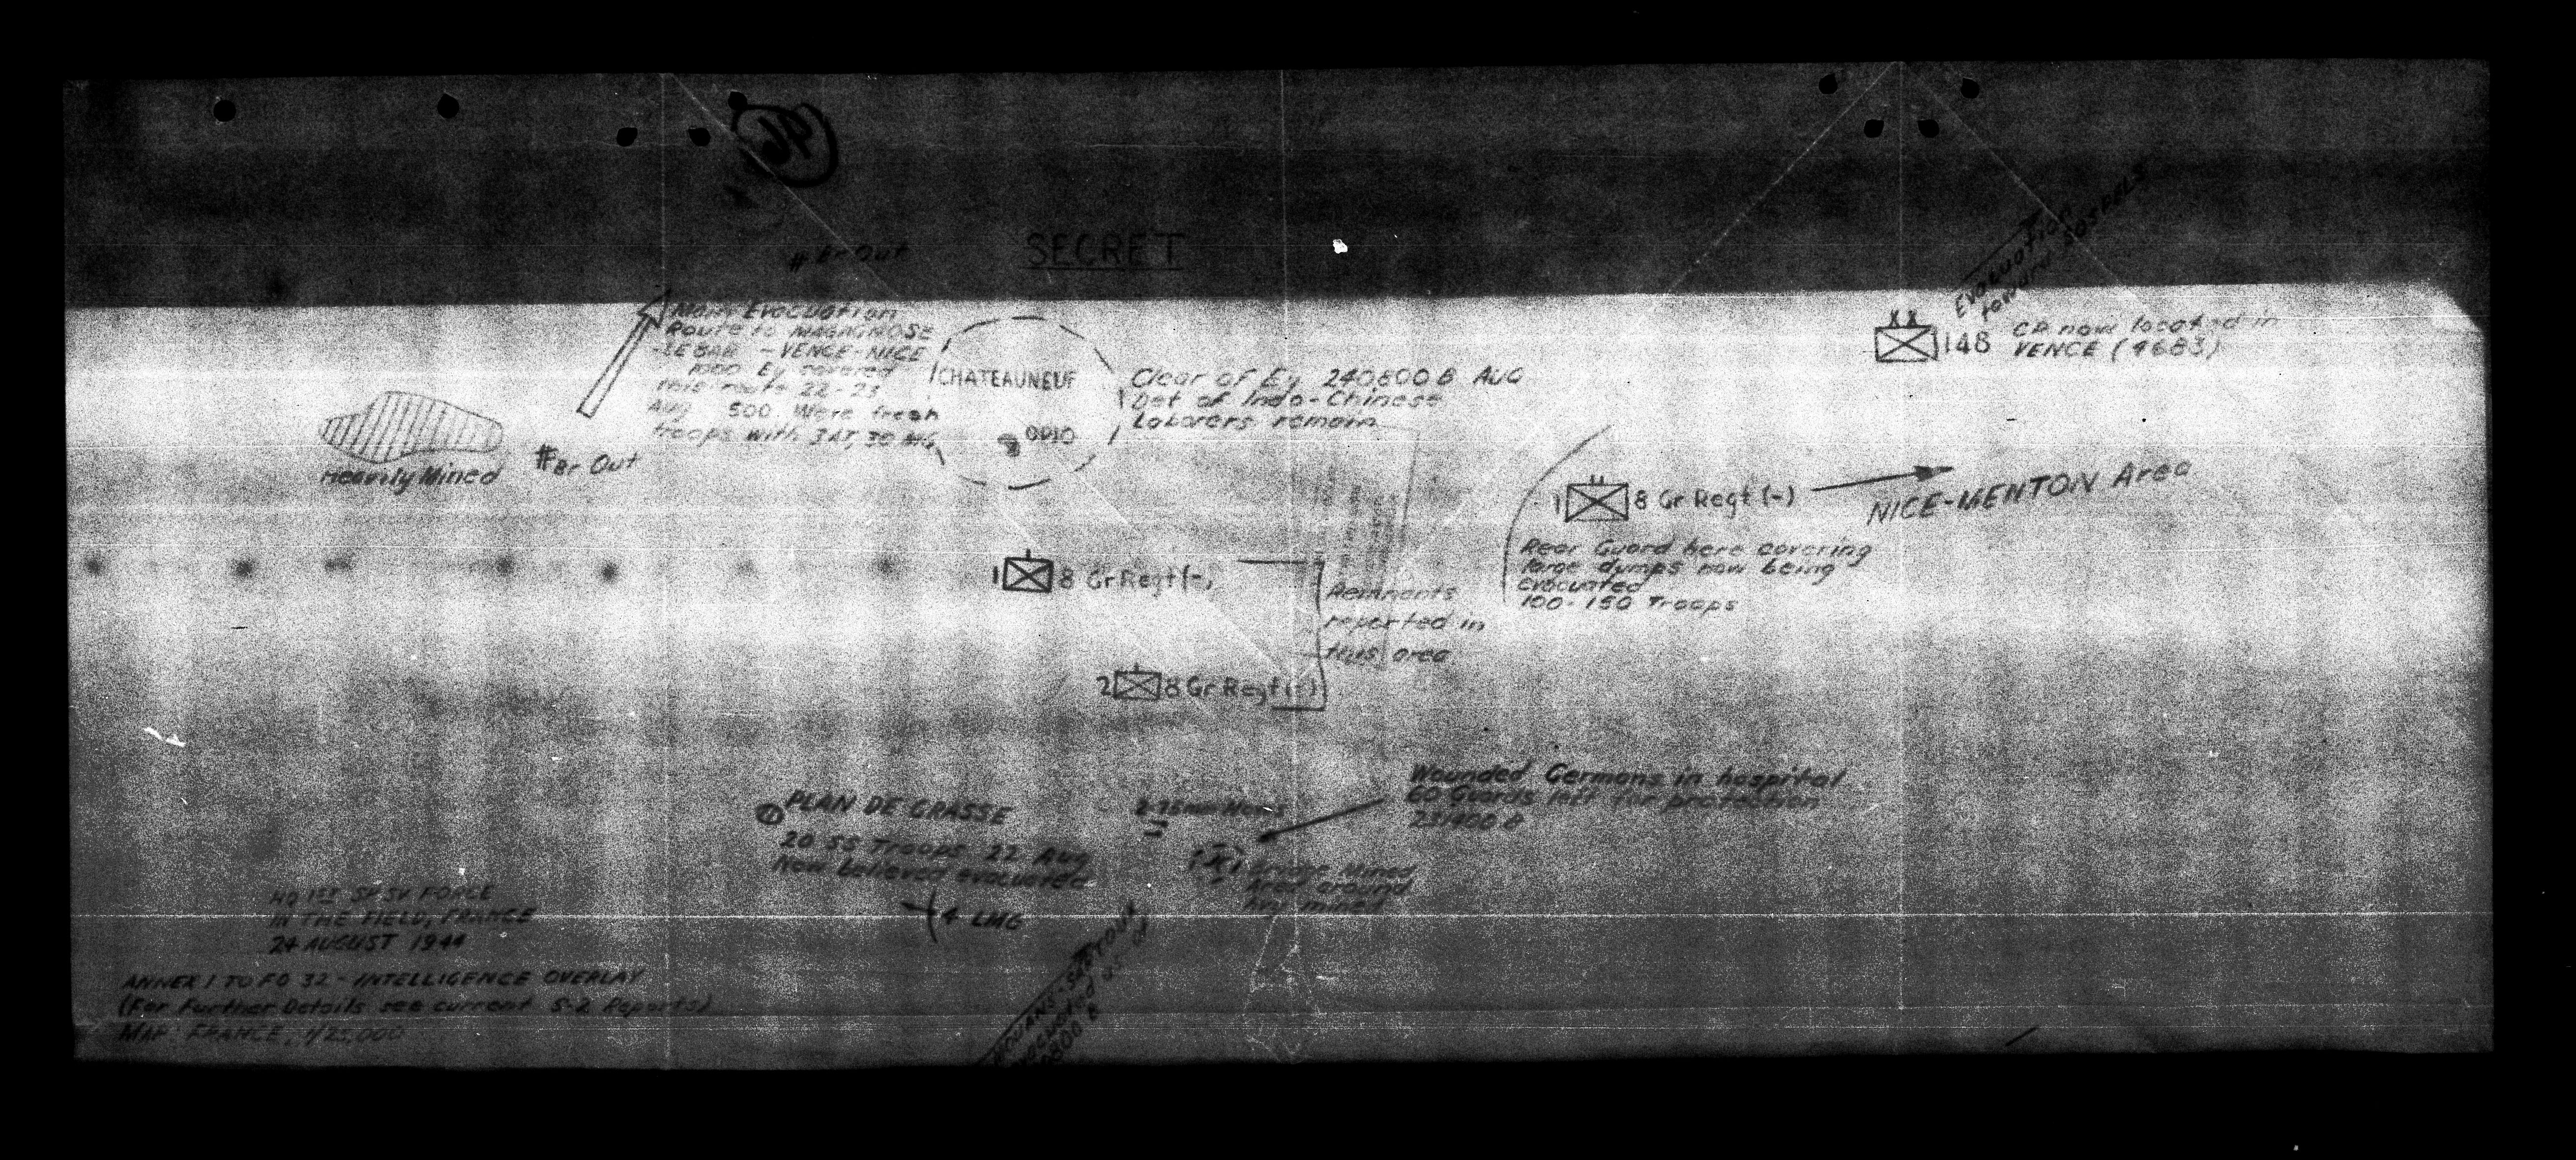 96
SECRET
# Br Out
Main Evacuation
Route to MAGAGNOSE
- LE BAR - VENCE-NICE
1000 Ey covered
this route 22-23
Aug. 500 Were fresh
troops with 3 AT, 30 MG
Heavily Mined
# Br Out
CHATEAUNEUF
OPIO
Clear of Ey 240800B AUG
Det of Indo-Chinese
Laborers remain
Evacuation
toward SOSPELS
148 CP now located in
VENCE (4683)
1 8 Gr Regt (-)
NICE-MENTON Area
Rear Guard here covering
large dumps now being
evacuated
100-150 Troops
1 8 Gr Regt (-)
Remnants
reported in
this area
2 8 Gr Regt (-)
PLAN DE GRASSE
20 SS Troops 22 Aug
Now believed evacuated
4 LMG
2-75mm Hows
Wounded Germans in hospital
60 Guards left for protection
231400 B
Bridge Mined
Area around
mined
MOUANS-SARTOUX
evacuated as of
0800 B
HQ 1ST SP SV FORCE
IN THE FIELD, FRANCE
24 AUGUST 1944
ANNEX 1 TO FO 32 - INTELLIGENCE OVERLAY
(For Further Details see current S-2 Reports)
MAP: FRANCE, 1/25,000